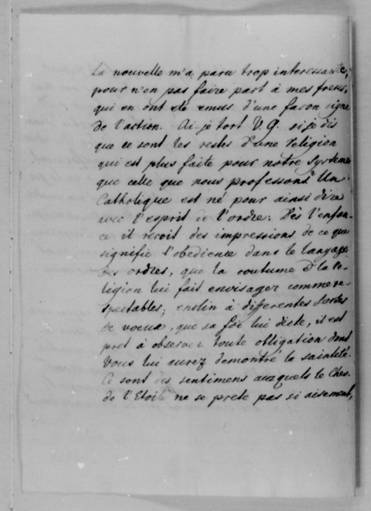 La nouvelle m'a paru trop interessante,
pour n'en pas faire part à mes freres,
qui en ont été emus d'une façon digne
de l'action. Ai-je tort V. G. si je dis
que ce sont les restes d'une religion
qui est plus faite pour nôtre Systeme
que celle que nous professons? Un
Catholique est né pour ainsi dire
avec l'esprit de l'ordre. Dès l'enfan-
ce il reçoit des impressions de ce que
signifie l'obedience dans le langage
des ordres, que la coutume & la re-
ligion lui fait envisager comme re-
spectables; enclin à differentes sortes
de voeux, que sa foi lui dicte, il est
pret à observer toute obligation dont
vous lui aurez demontré la sainteté.
Ce sont des sentimens auxquels le Chev.
de l'Etoile ne se prete pas si aisement,